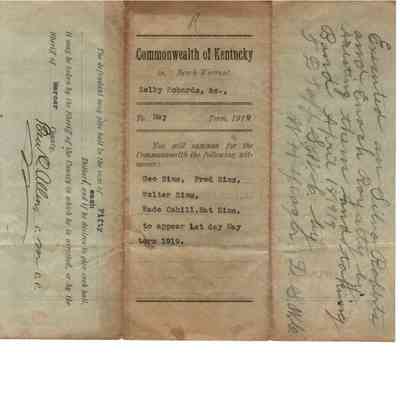 The defendant may give bail in the sum of
each Fifty
Dollars, and if he desires to give such bail,
it may be taken by the Sheriff of the County in which he is arrested, or by the
Sheriff of Mercer County.
C. M. C. C.
Commonwealth of Kentucky
vs. Bench Warrant
Selby Robards, &c.,
To May Term, 1919
You will summon for the
Commonwealth the following wit-
nesses:
Geo Sims, Fred Sims,
Walter Sims,
Wade Cahill, Nat Sims,
to appear 1st day May
term 1919.
Executed on Silva Roberts
and Enoch Royalty by
and taking
Bond April 1919
by
D S M C